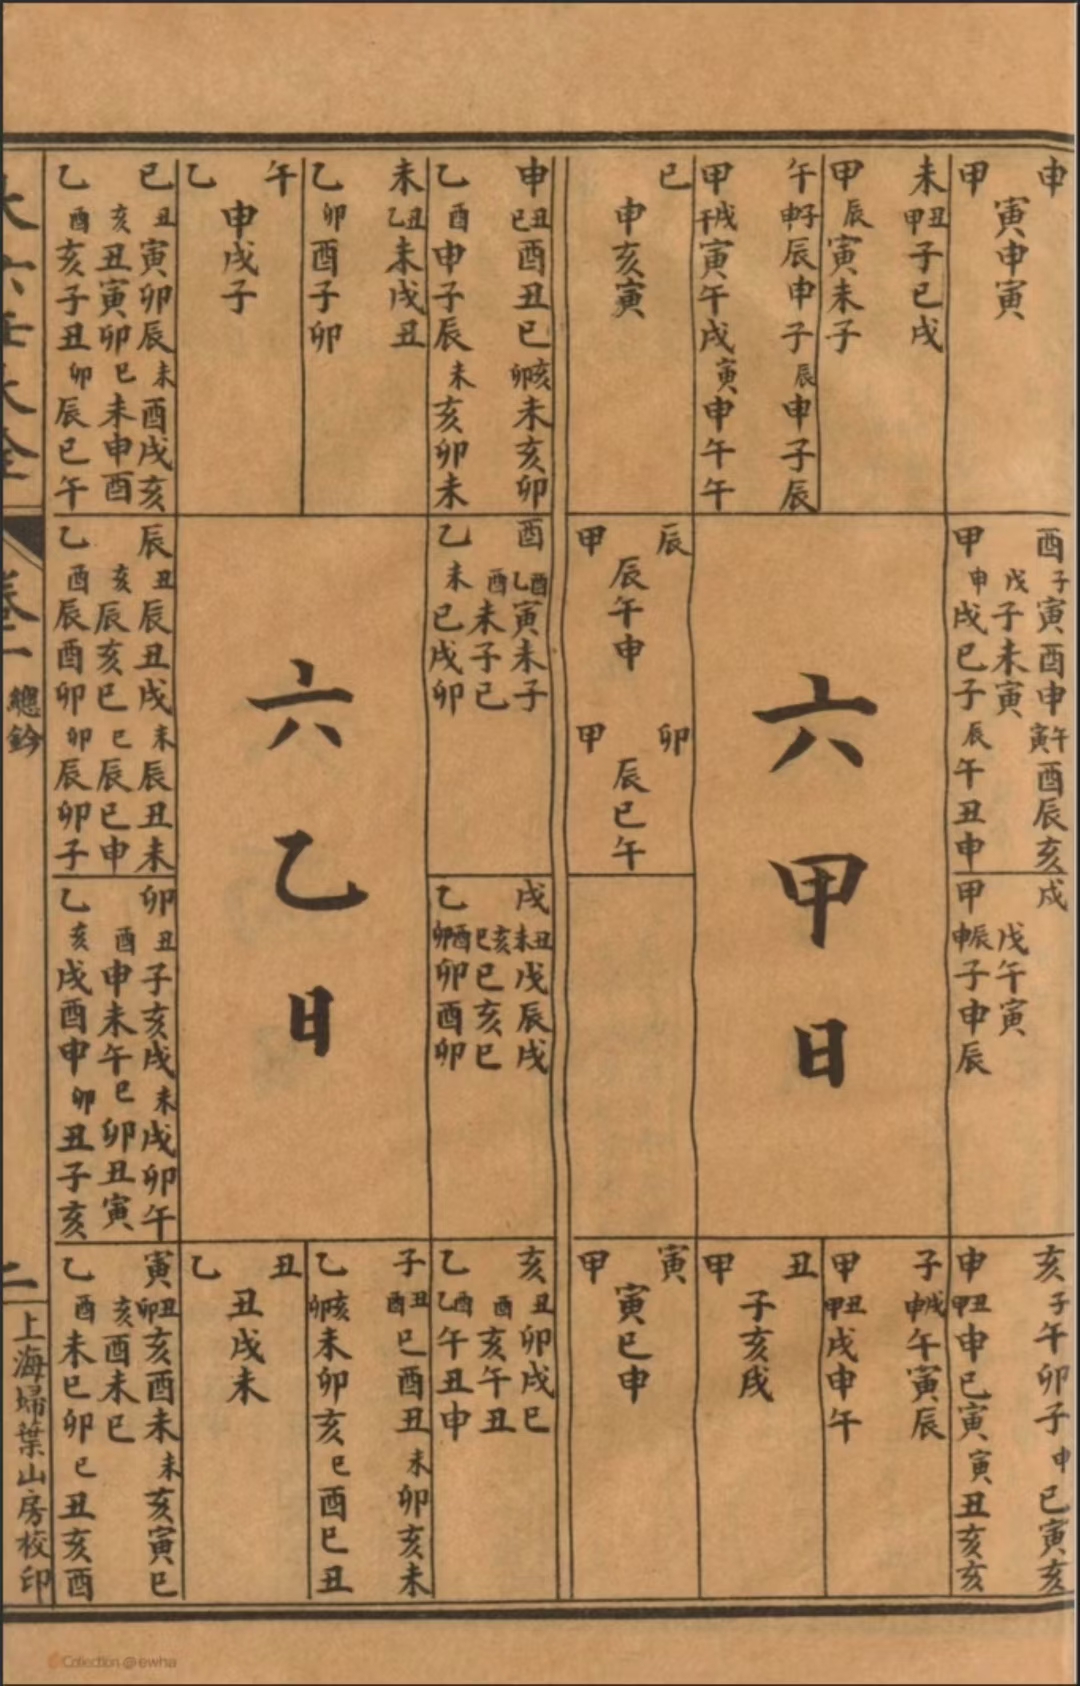 申
寅申寅
甲
未
丑甲子巳戌
甲
辰寅未子
午
子申辰申子
辰申子辰
甲
戌午寅午戌
寅申午午
巳
申亥寅
酉
子寅酉申
午寅酉辰亥
戌子未寅
甲
申戌巳子
辰午丑申
戌
戌午寅
甲
辰申子申辰
六甲日
辰
辰午申
甲
卯
辰巳午
甲
亥
子午卯子
申巳寅亥
申
丑甲申巳寅
寅丑亥亥
子
戌申午寅辰
甲
丑甲戌申午
丑
子亥戌
甲
寅
寅巳申
甲
申
丑巳酉丑巳
亥卯未亥卯
乙
酉申子辰
未亥卯未
未
丑乙未戌丑
乙
卯酉子卯
午
申戌子
乙
巳
丑寅卯辰
未酉戌亥
亥丑寅卯
巳未申酉
乙
酉亥子丑
卯辰巳午
酉
酉乙寅未子
酉未子巳
乙
未巳戌卯
戌
丑未戊辰戌
亥巳巳亥巳
乙
酉卯卯酉卯
六乙日
辰
丑辰丑戌
未辰丑未
亥辰亥巳
巳辰巳申
乙
酉辰酉卯
卯辰卯子
卯
丑子亥戌
未戌卯午
酉申未午
巳卯丑寅
乙
亥戌酉申
卯丑子亥
亥
丑卯戌巳
酉亥午丑
乙
酉乙午丑申
子
丑酉巳酉丑
未卯亥未
乙
亥卯未卯亥
巳酉巳丑
丑
丑戌未
乙
寅
丑卯亥酉未
未亥寅巳
亥酉未巳
乙
酉未巳卯
巳丑亥酉
大六壬大全
卷一
總鈐
二
上海埽葉山房校印
Collection @ ewha